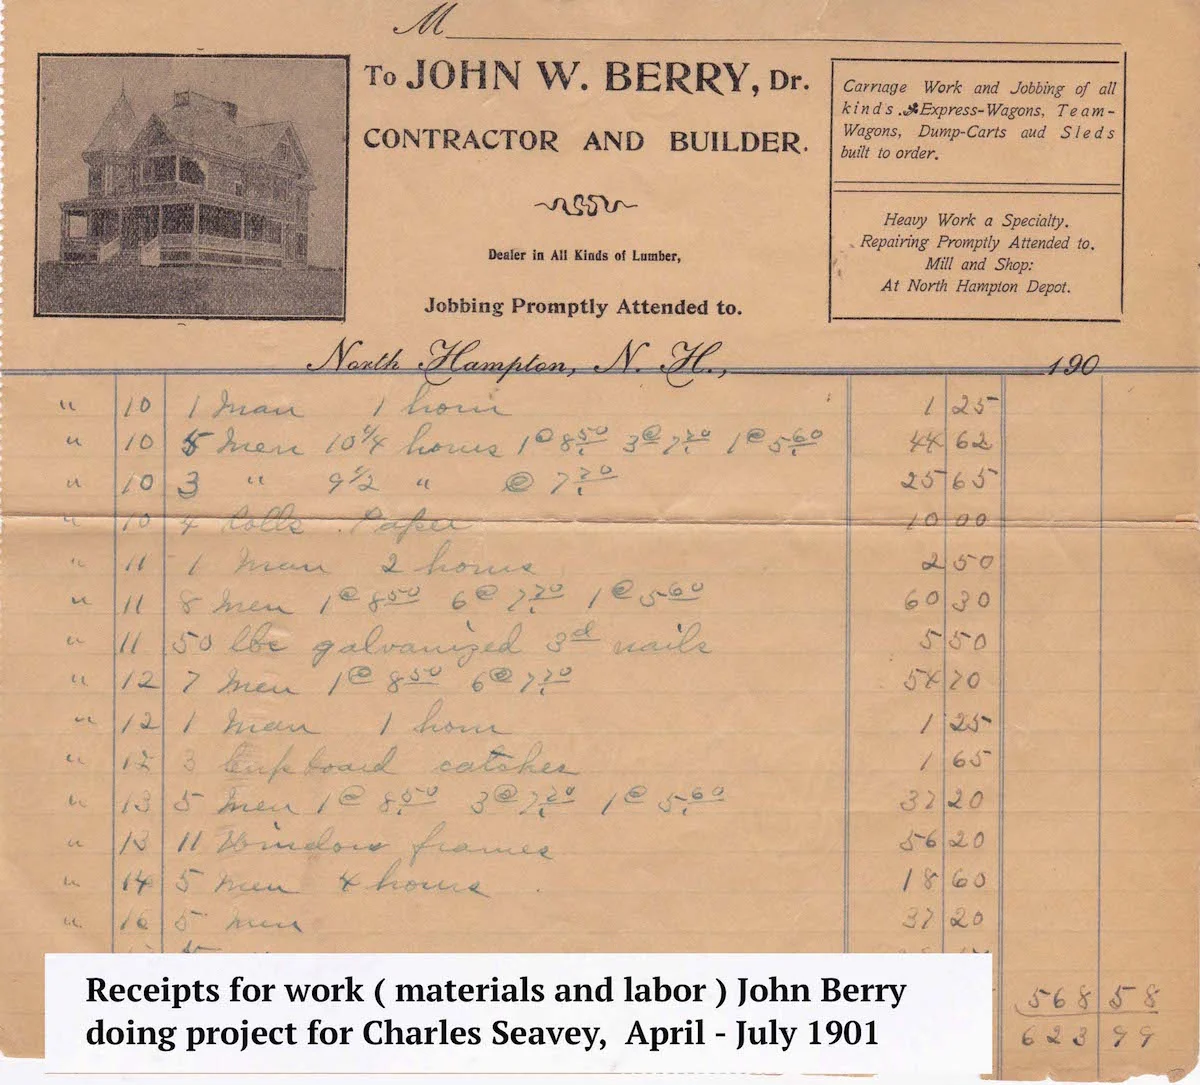 M
To JOHN W. BERRY, Dr.
CONTRACTOR AND BUILDER.
Dealer in All Kinds of Lumber,
Jobbing Promptly Attended to.
Carriage Work and Jobbing of all
kinds. Express-Wagons, Team-
Wagons, Dump-Carts and Sleds
built to order.
Heavy Work a Specialty.
Repairing Promptly Attended to.
Mill and Shop:
At North Hampton Depot.
North Hampton, N. H., 190
" 10 1 Man 1 hour 1 25
" 10 5 Men 10 1/4 hours 1@8.50 3@7.70 1@5.60 44 62
" 10 3 " 9 1/2 " @ 7.70 25 65
" 10 4 Rolls Paper 10 00
" 11 1 Man 2 hours 2 50
" 11 8 Men 1@8.50 6@7.70 1@5.60 60 30
" 11 50 lbs galvanized 3d nails 5 50
" 12 7 Men 1@8.50 6@7.70 54 70
" 12 1 Man 1 hour 1 25
" 12 3 Cupboard catches 1 65
" 13 5 Men 1@8.50 3@7.70 1@5.60 37 20
" 13 11 Window frames 56 20
" 14 5 Men 4 hours 18 60
" 16 5 men 37 20
568 58
623 99
Receipts for work ( materials and labor ) John Berry
doing project for Charles Seavey, April - July 1901